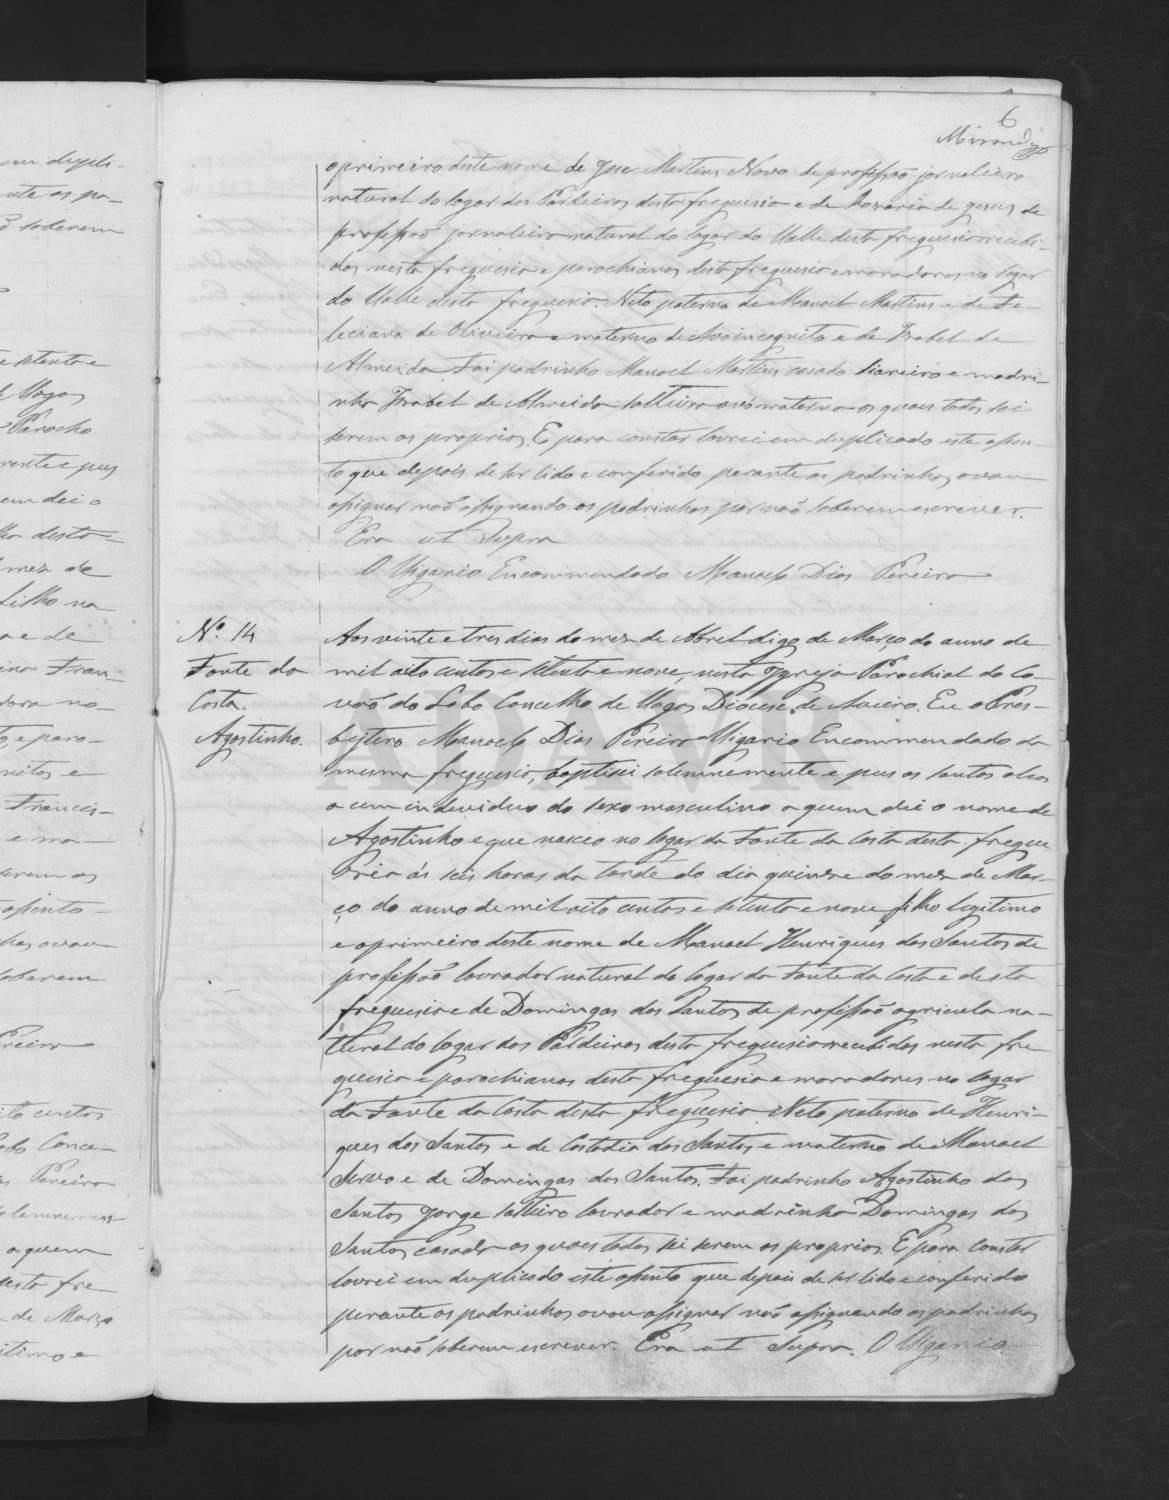 6
o primeiro deste nome de Jose Martins Novo de profissão jornaleiro
natural do logar dos Pardieiros desta freguesia e de Rozaria de Jesus de
profissão jornaleira natural do logar do Valle desta freguesia recebi-
dos nesta freguesia e parochianos desta freguesia e moradores no logar
do Valle desta freguesia. Neto paterno de Manoel Martins e de Fe-
leciana de Oliveira e materno de Avô incognito e de Isabel de
Almeida Foi padrinho Manoel Martins casado e madri-
nha Isabel de Almeida solteira avó materna os quaes todos sei
serem os proprios. E para constar lavrei em duplicado este assen-
to que depois de ser lido e conferido perante os padrinhos o vou
assignar não assignando os padrinhos por não saberem escrever.
Era ut Supra
O Vigario Encommendado Manoel Dias Pereira
Nº 14
Fonte da
Costa.
Agostinho.
Aos vinte e tres dias do mez de Abril digo de Março do anno de
mil oito centos e setenta e nove, nesta Igreja Parochial do Co-
vão do Lobo Concelho de Vagos Diocese de Aveiro. Eu o Pres-
bytero Manoel Dias Pereira Vigario Encommendado da
mesma freguesia, baptisei solemnemente e pus os santos oleos
a um individuo do sexo masculino a quem dei o nome de
Agostinho e que nasceo no logar da Fonte da Costa desta fregue
sia ás seis horas da tarde do dia quinze do mez de Mar-
ço do anno de mil oito centos e setenta e nove filho legitimo
e o primeiro deste nome de Manoel Henriques dos Santos de
profissão lavrador natural do logar da Fonte da Costa e desta
freguesia e de Domingas dos Santos de profissão agricula na-
tural do logar dos Pardieiros desta freguesia recebidos nesta fre
guesia e parochianos desta freguesia e moradores no logar
da Fonte da Costa desta freguesia Neto paterno de Henri-
ques dos Santos e de Costodia dos Santos e materno de Manoel
Servo e de Domingas dos Santos. Foi padrinho Agostinho dos
Santos Jorge solteiro lavrador e madrinha Domingas dos
Santos casada os quaes todos sei serem os proprios. E para constar
lavrei em duplicado este assento que depois de ser lido e conferido
perante os padrinhos o vou assignar não assignando os padrinhos
por não saberem escrever. Era ut Supra. O Vigario
ADAVR